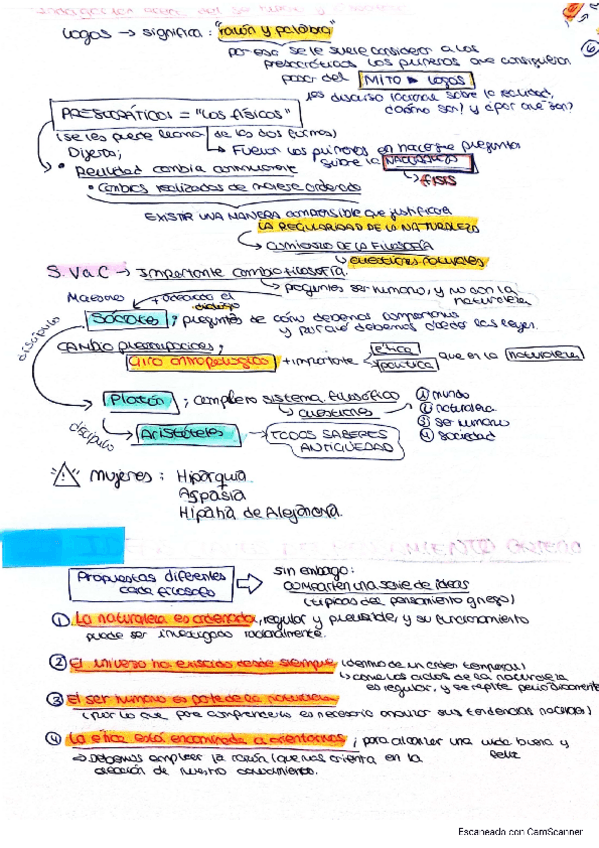 Logos → significa: "razón y palabra"
por eso se le suele considerar a los
presocráticos los primeros que consiguieron
pasar del MITO ▸ LOGOS
discurso racional sobre la realidad,
¿cómo son? y ¿por qué son?
PRESOCRÁTICOS = "LOS FÍSICOS"
(se les puede llamar de las dos formas)
Dijeron;
↳ Fueron los primeros en hacerse preguntas
sobre la NATURALEZA
↳ FISIS
• Realidad cambia continuamente
• Cambios realizados de manera ordenada
EXISTIR UNA MANERA comprensible que justificara
LA REGULARIDAD DE LA NATURALEZA
↳ COMIENZO DE LA FILOSOFÍA
↳ cuestiones naturales
S. V a C → Importante cambio filosofía.
↳ preguntas ser humano, y no con la
naturaleza
Maestro
diálogo
Sócrates; preguntas de cómo debemos comportarnos
y por qué debemos obedecer las leyes.
discípulo
CAMBIO preocupaciones;
Giro antropológico + importante ética
política
que en la naturaleza
Platón; completo sistema filosófico
↳ cuestiones
① mundo
② naturaleza
③ ser humano
④ sociedad
discípulo
Aristóteles → TODOS SABERES
ANTIGÜEDAD
⚠ Mujeres: Hiparquia
Aspasia
Hipatia de Alejandría.
Propuestas diferentes
cada filósofo
⇨ sin embargo:
comparten una serie de ideas
(típicas del pensamiento griego)
① La naturaleza es ordenada, regular y previsible, y su funcionamiento
puede ser investigado racionalmente.
② El universo ha existido desde siempre (dentro de un orden temporal)
↳ como los ciclos de la naturaleza
es regular, y se repite periódicamente
③ El ser humano es parte de la naturaleza
(por lo que para comprenderlo es necesario analizar sus tendencias naturales)
④ La ética está encaminada a orientarnos; para alcanzar una vida buena y
feliz
⇒ Debemos emplear la razón (que nos orienta en la
dirección de nuestro conocimiento.
Escaneado con CamScanner